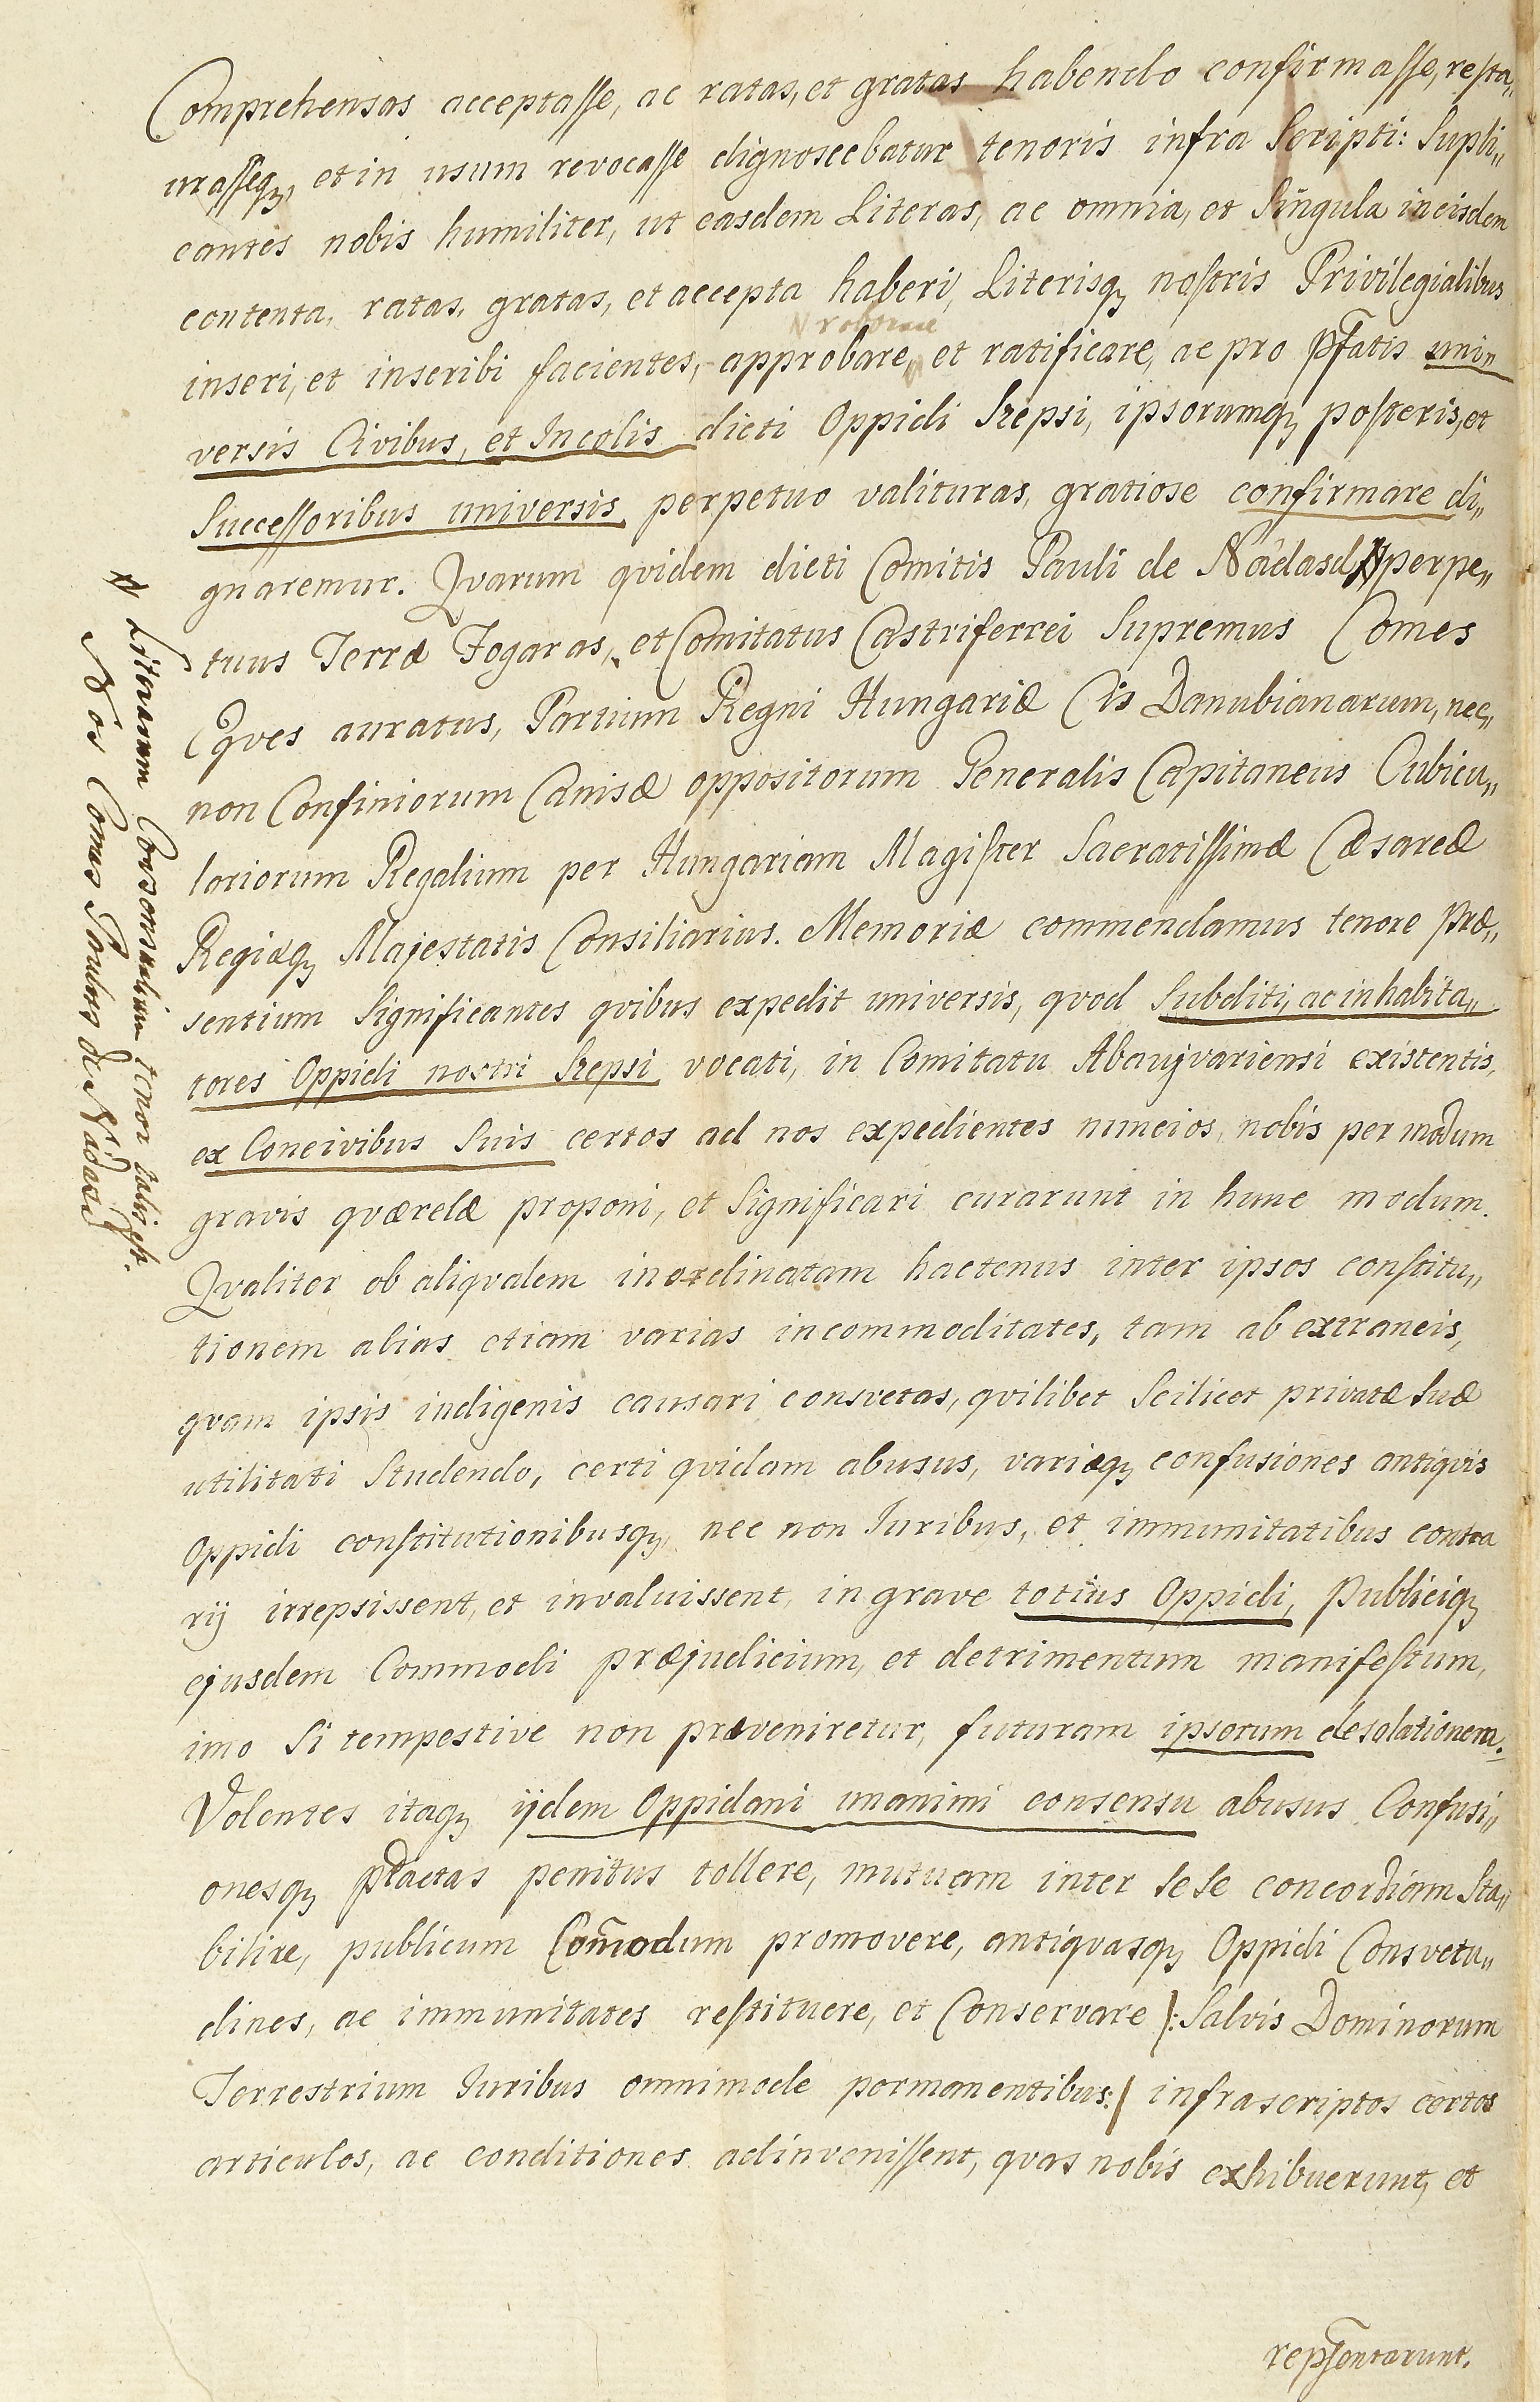 Comprehensas acceptasse, ac ratas, et gratas habendo confirmasse, resta„
urasseq, et in usum revocasse dignoscebatur tenoris infra Scripti: Supli„
cantes nobis humiliter, ut easdem Literas, ac omnia, et Singula in eisdem
contenta, ratas, gratas, et accepta haberi, Literisq nostris Privilegialibus
N roborare
inseri, et inscribi facientes, approbare, et ratificare, ac pro pfatis uni„
versis Civibus, et Incolis dicti Oppidi Szepsi, ipsorumq posteris, et
Successoribus universis perpetuo valituras, gratiose confirmare di„
gnaremur. Qvarum qvidem dicti Comitis Pauli de Nádasd perpe„
tuus Terræ Fogaras, et Comitatus Castriferrei Supremus Comes
Eqves auratus, Partium Regni Hungariæ Cis Danubianarum, nec„
non Confiniorum Canisæ oppositorum Generalis Capitaneus Cubicu„
loriorum Regalium per Hungariam Magister Sacratissimæ Cæsareæ
Regiæq Majestatis Consiliarius. Memoriæ commendamus tenore præ„
sentium Significantes qvibus expedit universis, qvod Subditi, ac inhabita„
tores Oppidi nostri Szepsi vocati, in Comitatu Abaujvariensi existentis,
ex Concivibus Suis certos ad nos expedientes nuncios, nobis per modum
gravis qværelæ proponi, et Significari curarunt in hunc modum.
Qvaliter ob aliqvalem inordinatam hactenus inter ipsos constitu„
tionem alias etiam varias incommoditates, tam ab extraneis,
qvam ipsis indigenis causari consvetas, qvilibet Scilicet privatæ Suæ
utilitati Studendo, certi qvidam abusus, variæq confusiones antiqvis
Oppidi constitutionibusq, nec non Iuribus, et immunitatibus contra
rij irrepsissent, et invaluissent, in grave totius Oppidi, Publiciq
ejusdem Commodi præjudicium, et detrimentum manifestum,
imo Si tempestive non præveniretur, futuram ipsorum desolationem.
Volentes itaq ijdem Oppidani unanimi consensu abusus Confusi„
onesq ptactas penitus tollere, mutuam inter Se Se concordiam Sta„
bilire, publicum Com̃odum promovere, antiqvasq Oppidi Consvetu„
dines, ac immunitates restituere, et Conservare /: Salvis Dominorum
Terrestrium Iuribus omnimode permanentibus :/ infrascriptos certos
articulos, ac conditiones adinvenissent, qvas nobis exhibuerunt, et
repsentarunt.
Literarum Consensualium tenor talis est.
Nos Comes Paulus de Nádasd